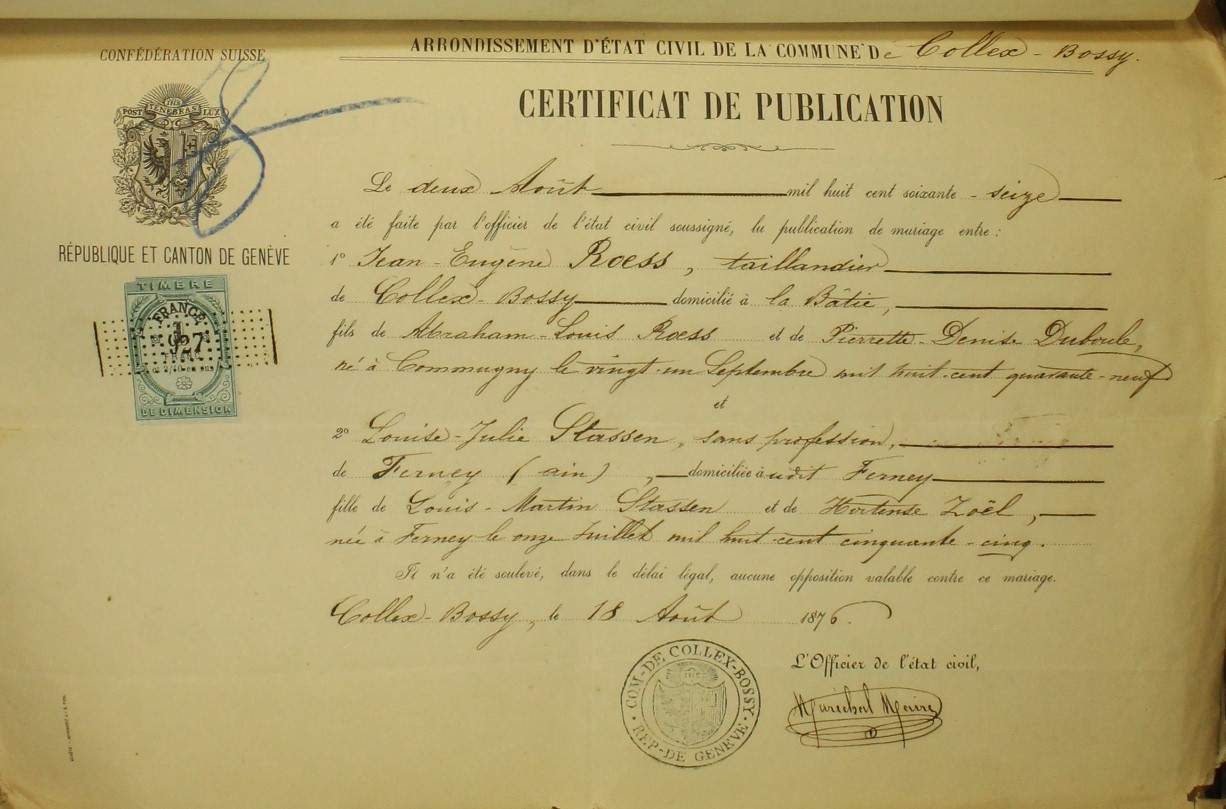 CONFÉDÉRATION SUISSE
POST TENEBRAS LUX
RÉPUBLIQUE ET CANTON DE GENÈVE
TIMBRE
FRANCE
927
DE DIMENSION
ARRONDISSEMENT D'ÉTAT CIVIL DE LA COMMUNE De Collex-Bossy.
CERTIFICAT DE PUBLICATION
Le deux Août mil huit cent soixante-seize
a été faite par l'officier de l'état civil soussigné, la publication de mariage entre :
1º Jean-Eugène Roess, taillandier
de Collex-Bossy domicilié à la Bâtie,
fils de Abraham-Louis Roess et de Pierrette-Denise Duboule,
né à Commugny le vingt-un Septembre mil huit-cent quarante-neuf
et
2º Louise-Julie Stassen, sans profession,
de Ferney (ain), domiciliée à udit Ferney
fille de Louis-Martin Stassen et de Hortense Zoël,
née à Ferney le onze Juillet mil huit-cent cinquante-cinq.
Il n'a été soulevé, dans le délai légal, aucune opposition valable contre ce mariage.
Collex-Bossy, le 18 Août 1876.
L'Officier de l'état civil,
Maréchal Maire
COM-DE COLLEX-BOSSY
REP-DE GENÈVE